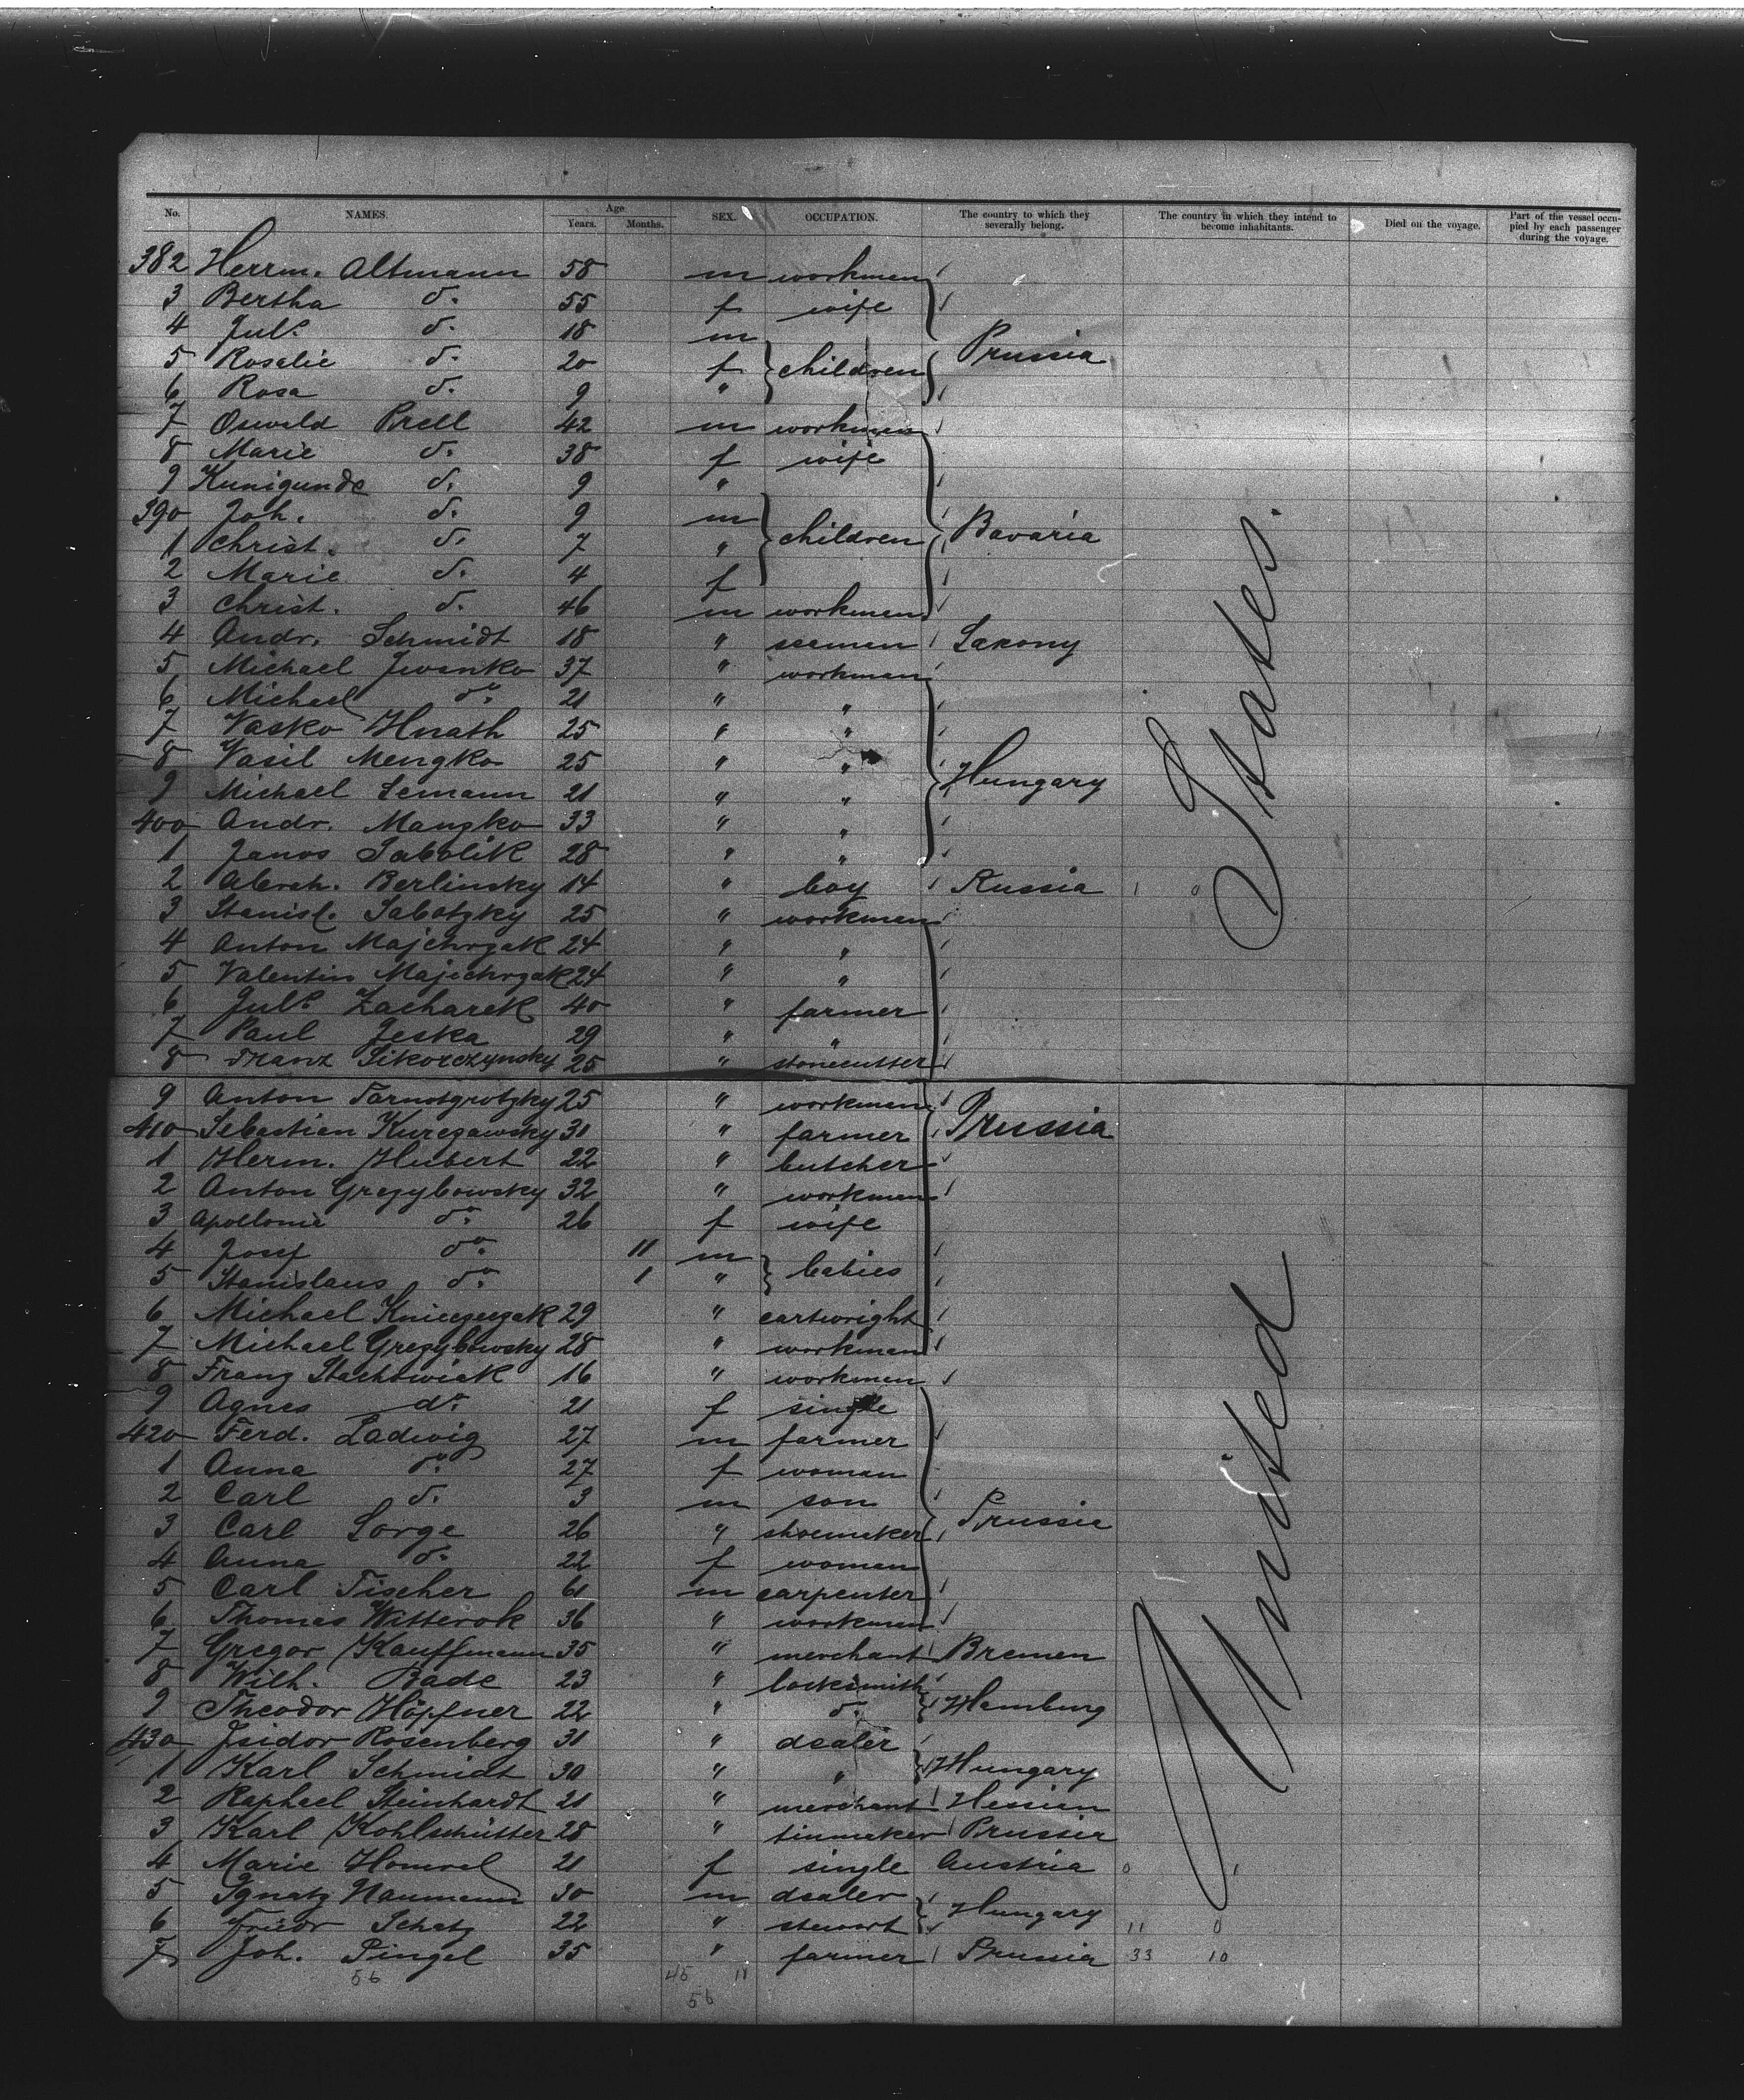 No. NAMES. Age Years. Months. SEX. OCCUPATION. The country to which they severally belong. The country in which they intend to become inhabitants. Died on the voyage. Part of the vessel occupied by each passenger during the voyage.
382 Herrm. Altmann 58 m workmen
3 Bertha d. 55 f wife
4 Jul. d. 18 m
Prussia
5 Rosalie d. 20 f children
6 Rosa d. 9 "
7 Oswald Prell 42 m workmen
8 Marie d. 38 f wife
9 Kunigunde d. 9 "
390 Joh. d. 9 m
1 Christ. d. 7 " children Bavaria
2 Marie d. 4 f
3 Christ. d. 46 m workmen
4 Andr. Schmidt 18 " seemen Saxony
5 Michael Iwanko 37 " workmen
6 Michael do. 21 " "
7 Vasko Hnath 25 " "
8 Vasil Mengko 25 " "
9 Michael Semann 21 " " Hungary
400 Andr. Mangko 33 " "
1 Janos Sabolik 28 " "
2 Abrah. Berlinsky 14 " boy Russia 1 0
3 Stanisl. Sabotzky 25 " workmen
4 Anton Majchrzak 24 " "
5 Valentin Majchrzak 24 " "
6 Jul. Zacharek 40 " farmer
7 Paul Jeska 29 " "
8 Franz Sikorczynsky 25 " stonecutter
9 Anton Tarnotgrotzky 25 " workmen
410 Sebastian Kurczawsky 31 " farmer Prussia
1 Herm. Hubert 22 " butcher
2 Anton Grezybowsky 32 " workmen
3 Apollonie do. 26 f wife
4 Josef do. 11 m
5 Stanislaus do. 1 " babies
6 Michael 29 " cartwright
7 Michael Grezybowsky 28 " workmen
8 Franz Stachowiak 16 " workmen
9 Agnes do. 21 f single
420 Ferd. Ladwig 27 m farmer
1 Anna do. 27 f woman
2 Carl d. 3 m son
3 Carl Sorge 26 " shoemaker Prussia
4 Anna d. 22 f woman
5 Carl Fischer 61 m carpenter
6 Thomas Witterok 36 " workmen
7 Gregor Kauffmann 35 " merchant Bremen
8 Wilh. Bade 23 " locksmith
9 Theodor Höpfner 22 " d. Hamburg
430 Isidor Rosenberg 31 " dealer
1 Karl Schmidt 30 " " Hungary
2 Raphael Steinhardt 21 " merchant Hessian
3 Karl Kohlschütter 28 " tinmaker Prussia
4 Marie 21 f single Austria 0 1
5 Ignatz Naumann 30 m dealer
Hungary
6 Friedr Schatz 22 " stewart 11 0
7 Joh. Pingel 35 " farmer Prussia 33 10
56 45 11
56
United States.